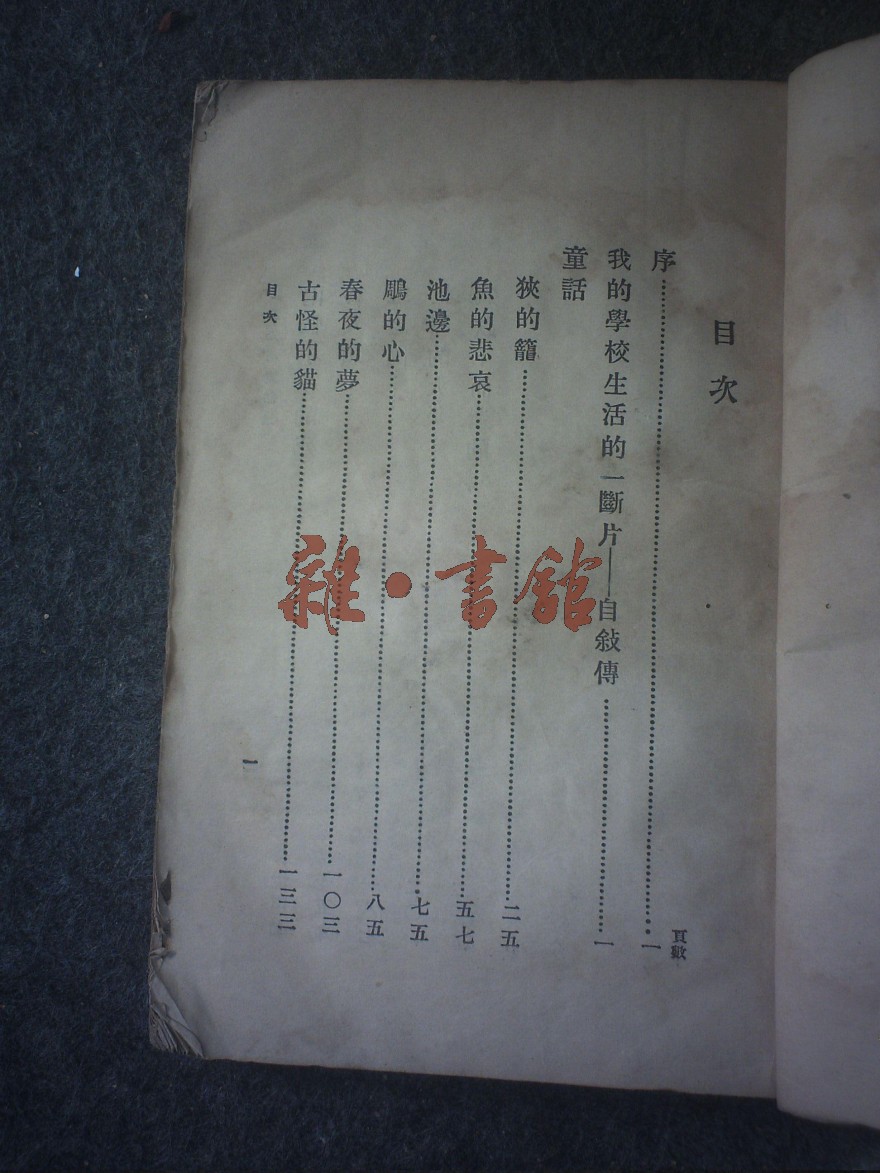 目次
頁數
序……一
我的學校生活的一斷片——自敍傳……一
童話
狹的籠……二五
魚的悲哀……五七
池邊……七五
鵰的心……八五
春夜的夢……一〇三
古怪的貓……一三三
目次
一
雜·書館